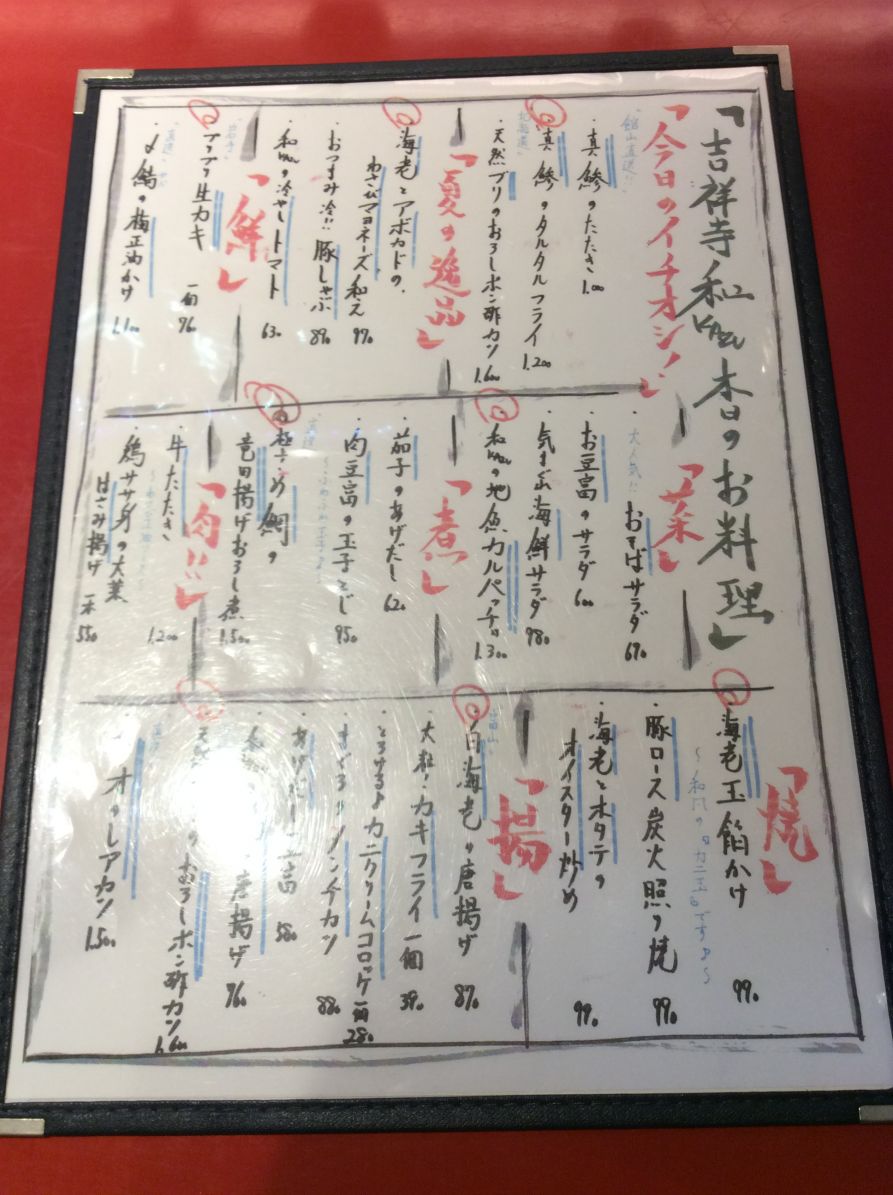 「吉祥寺 和 KAZU 本日のお料理」
「今日のイチオシ！」
館山直送!!
・真鯵のたたき 1.000
・真鯵のタルタルフライ 1.200
北海道
・天然ブリのおろしポン酢カツ 1.600
「夏の逸品」
・海老とアボカドの、
わさびマヨネーズ和え 990
・おつまみ冷!! 豚しゃぶ 890
・和KAZUの冷やしトマト 630
「鮮」
岩手
・プリプリ生カキ 一個 960
・〆鯖の梅正油かけ 1.100
「菜」
大人気!!
・おそばサラダ 690
・お豆富のサラダ 600
・気まぐれ海鮮サラダ 980
・和KAZUの地魚カルパッチョ 1.300
「煮」
・茄子のあげだし 620
・肉豆富の玉子とじ 950
竜田揚げおろし煮 1.500
「肉!!」
・牛たたき 1.200
・鶏ササ身の大葉
はさみ揚げ 一本 550
「焼」
・海老玉餡かけ 990
〜和風のカニ玉です♪〜
・豚ロース炭火照り焼 990
・海老とホタテの
オイスター炒め 990
「揚」
富山
・白海老の唐揚げ 870
・大粒!カキフライ 一個 390
・とろける♪カニクリームコロッケ 一個 280
・まぐろメンチカツ 880
580
唐揚げ 960
おろしポン酢カツ 1.600
1.500